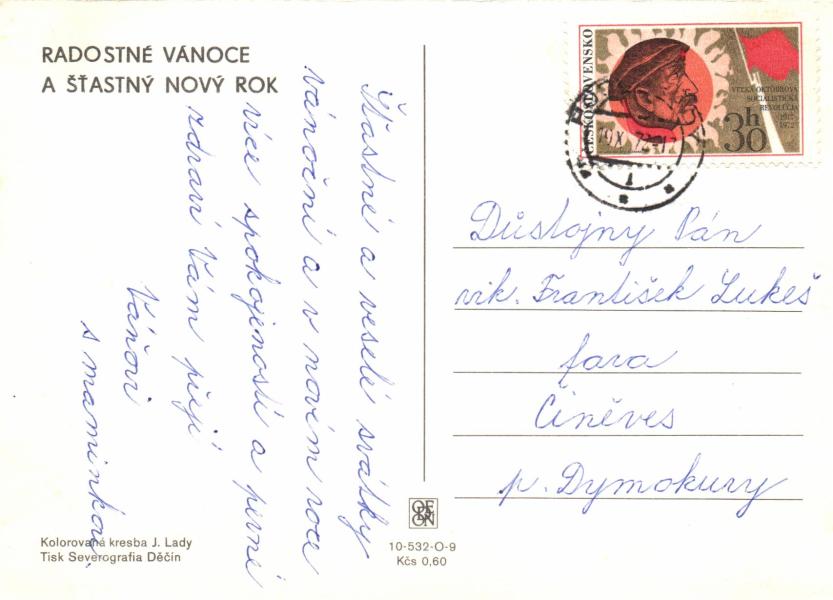 RADOSTNÉ VÁNOCE
A ŠŤASTNÝ NOVÝ ROK
Šťastné a veselé svátky
vánoční a v novém roce
více spokojenosti a pevné
zdraví Vám přejí
Váňovi
s maminkou.
ČESKOSLOVENSKO
VELKÁ ŘÍJNOVÁ
SOCIALISTICKÁ
REVOLUCE
1917
1972
30h
Důstojný Pán
vik. František Lukeš
fara
Činěves
p. Dymokury
Kolorovaná kresba J. Lady
Tisk Severografia Děčín
ODEON
10-532-O-9
Kčs 0,60